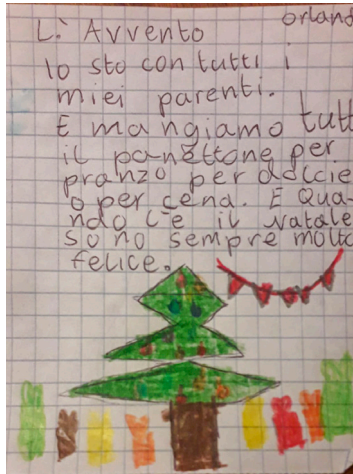 orland
L' Avvento
Io sto con tutti i
miei parenti.
E mangiamo tutt
il panettone per
pranzo per dolcie
o per cena. E Qua-
ndo c'è il Natale
sono sempre molto
felice.